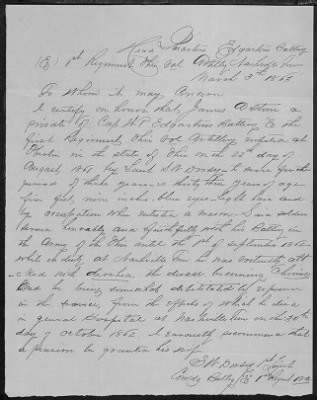 Head Quarters Edgartons Battery
(E) 1st Regiment Ohio Vol Artilly Nashville Tenn
March 3rd 1863
To Whom it may Concern
I certify on honor that James A Stone a
private of Cap W P Edgartons Battery E the
first Regiment Ohio Vol Artillery enlisted at
in the state of Ohio on the 22d day of
August 1861 by Lieut S W Dorsey to serve for the
period of three years is thirty three years of age
five feet, nine inches blue eyes light hair and
by occupation when enlisted a mason
served honorably and faithfully with his Battery in
the Army of the Ohio until the 1st of September 1862
while on duty at Nashville Tenn he was
with diarrhea the disease becoming Chronic
and he being somewhat debilitated by exposure
in the service, from the effects of which he died
in general Hospital at Nashville Tenn on the 30th
day of October 1862 I earnestly recommend that
a pension be granted his wife
S W Dorsey 1st Lieut
Comdg Batty E 1st Regt